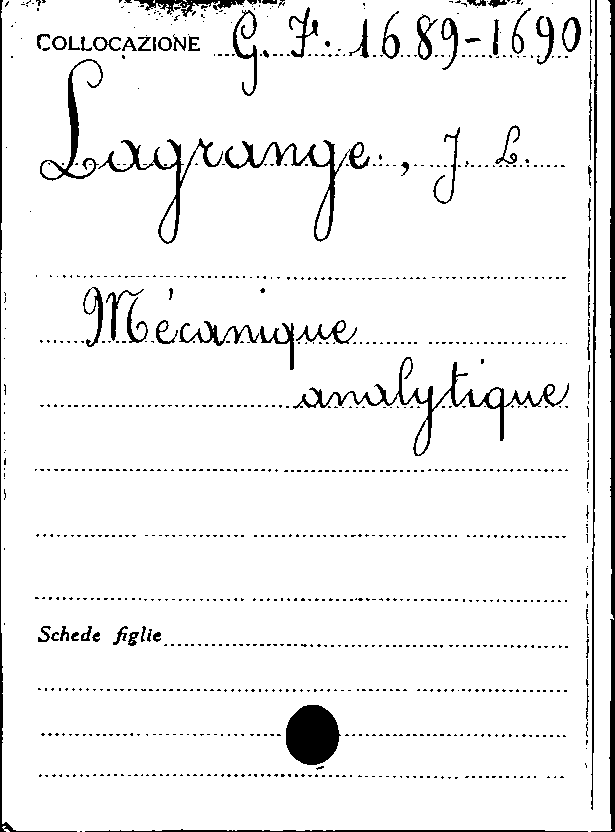 COLLOCAZIONE G. F. 1689-1690
Lagrange, J. L.
Mécanique
analytique
Schede figlie